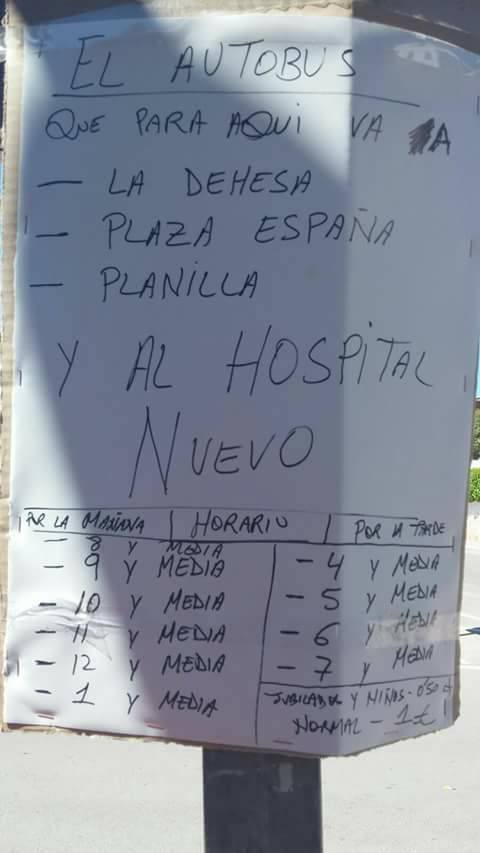 EL AUTOBUS
QUE PARA AQUI VA A
— LA DEHESA
— PLAZA ESPAÑA
— PLANILLA
Y AL HOSPITAL
NUEVO
POR LA MAÑANA | HORARIO | POR LA TARDE
— 8 Y MEDIA
— 9 Y MEDIA
— 10 Y MEDIA
— 11 Y MEDIA
— 12 Y MEDIA
— 1 Y MEDIA
— 4 Y MEDIA
— 5 Y MEDIA
— 6 Y MEDIA
— 7 Y MEDIA
JUBILADOS Y NIÑOS - 0'50 €
NORMAL - 1 €